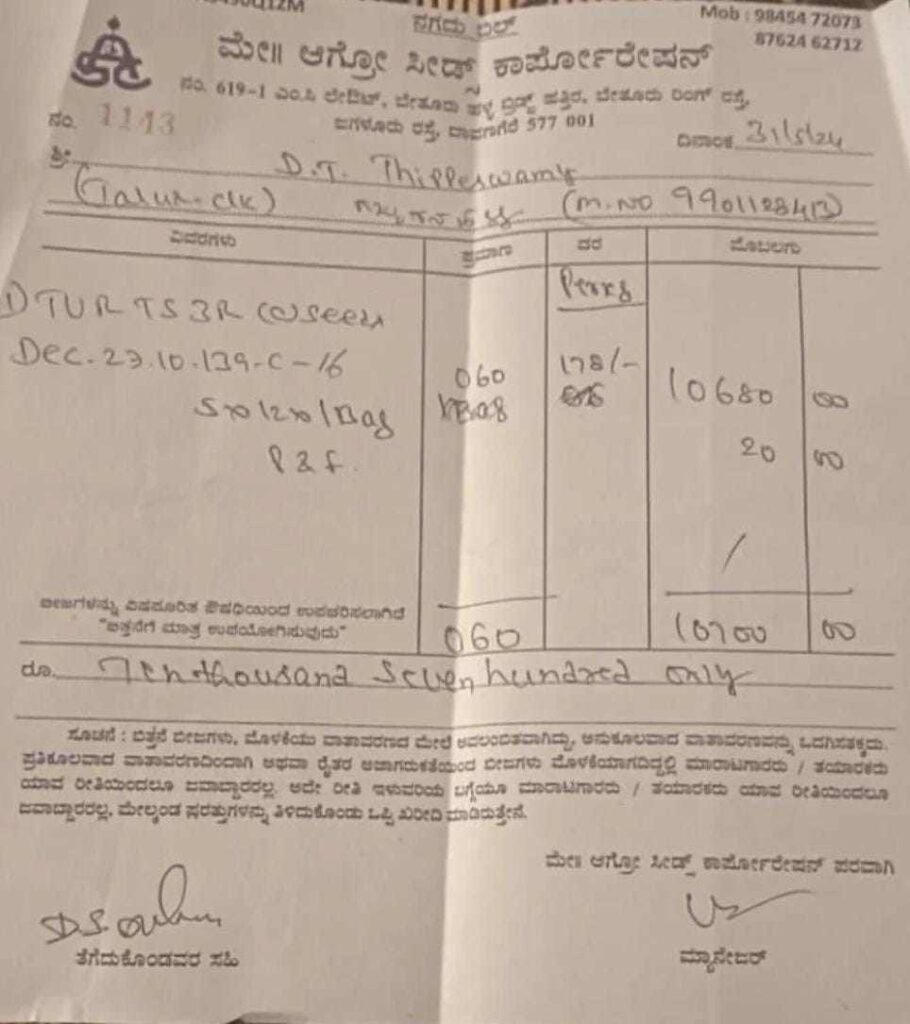 ನಗದು ಬಿಲ್
Mob : 98454 72073
87624 62712
ಮೇ॥ ಆಗ್ರೋ ಸೀಡ್ಸ್ ಕಾರ್ಪೋರೇಷನ್
ನಂ. 619-1 ಎಂ.ಸಿ ಲೇಔಟ್, ಬೇತೂರು ಹಳ್ಳ ಬ್ರಿಡ್ಜ್ ಹತ್ತಿರ, ಬೇತೂರು ರಿಂಗ್ ರಸ್ತೆ,
ಜಗಳೂರು ರಸ್ತೆ, ದಾವಣಗೆರೆ 577 001
ನಂ. 1143 ದಿನಾಂಕ 31/5/24
ಶ್ರೀ D.T. Thippeswamy
(Talur-clk) (M.NO 9901128413)
ವಿವರಗಳು ಪ್ರಮಾಣ ದರ ಮೊಬಲಗು
Perkg
1) TUR TS 3R
Dec.23.10.139-C-16 060 178/- 10680 00
Bag
P & F. 20 00
ಬೀಜಗಳನ್ನು ವಿಷಪೂರಿತ ಔಷಧಿಯಿಂದ ಉಪಚರಿಸಲಾಗಿದೆ
"ಬಿತ್ತನೆಗೆ ಮಾತ್ರ ಉಪಯೋಗಿಸುವುದು" 060 10700 00
ರೂ. Ten thousand Seven hundred only
ಸೂಚನೆ : ಬಿತ್ತನೆ ಬೀಜಗಳು, ಮೊಳಕೆಯು ವಾತಾವರಣದ ಮೇಲೆ ಅವಲಂಬಿತವಾಗಿದ್ದು, ಅನುಕೂಲವಾದ ವಾತಾವರಣವನ್ನು ಒದಗಿಸತಕ್ಕದು.
ಪ್ರತಿಕೂಲವಾದ ವಾತಾವರಣದಿಂದಾಗಿ ಅಥವಾ ರೈತರ ಅಜಾಗರುಕತೆಯಿಂದ ಬೀಜಗಳು ಮೊಳಕೆಯಾಗದಿದ್ದಲ್ಲಿ ಮಾರಾಟಗಾರರು / ತಯಾರಕರು
ಯಾವ ರೀತಿಯಿಂದಲೂ ಜವಾಬ್ದಾರರಲ್ಲ. ಅದೇ ರೀತಿ ಇಳುವರಿಯ ಬಗ್ಗೆಯೂ ಮಾರಾಟಗಾರರು / ತಯಾರಕರು ಯಾವ ರೀತಿಯಿಂದಲೂ
ಜವಾಬ್ದಾರರಲ್ಲ, ಮೇಲ್ಕಂಡ ಷರತ್ತುಗಳನ್ನು ತಿಳಿದುಕೊಂಡು ಒಪ್ಪಿ ಖರೀದಿ ಮಾಡಿರುತ್ತೇನೆ.
ಮೇ॥ ಆಗ್ರೋ ಸೀಡ್ಸ್ ಕಾರ್ಪೋರೇಷನ್ ಪರವಾಗಿ
ತೆಗೆದುಕೊಂಡವರ ಸಹಿ ಮ್ಯಾನೇಜರ್